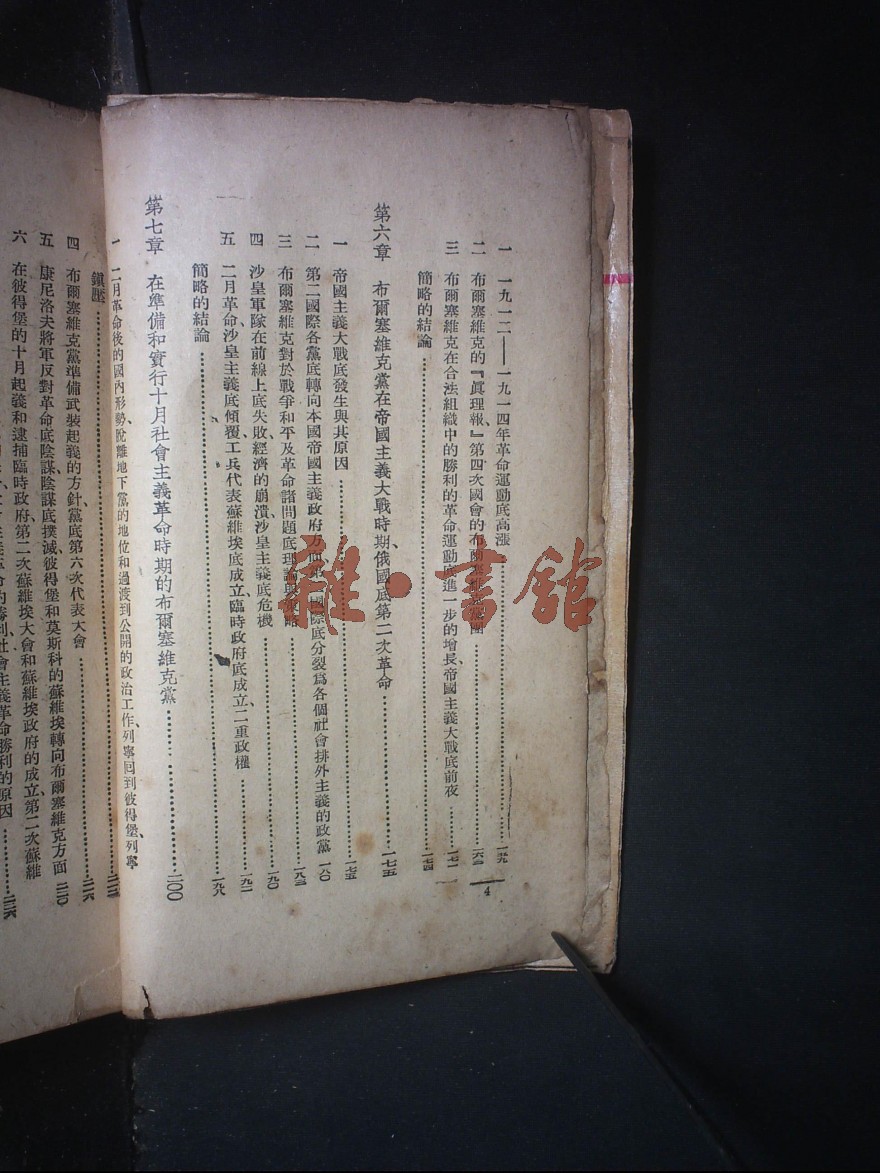 一 一九一二——一九一四年革命運動底高漲……一四九
二 布爾塞維克的『眞理報』、第四次國會的布爾塞維克黨團……一六二
三 布爾塞維克在合法組織中的勝利的革命運動底進一步的增長、帝國主義大戰底前夜……一七一
簡略的結論……一七四
第六章 布爾塞維克黨在帝國主義大戰時期、俄國底第二次革命……一七五
一 帝國主義大戰底發生與其原因……一七五
二 第二國際各黨底轉向本國帝國主義政府方面、第二國際底分裂爲各個社會排外主義的政黨 一八〇
三 布爾塞維克對於戰爭和平及革命諸問題底理論與策略……一八三
四 沙皇軍隊在前線上底失敗、經濟的崩潰、沙皇主義底危機……一九〇
五 二月革命、沙皇主義底傾覆、工兵代表蘇維埃底成立、臨時政府底成立、二重政權……一九二
簡略的結論……一九八
第七章 在準備和實行十月社會主義革命時期的布爾塞維克黨……二〇〇
一 二月革命後的國內形勢、脫離地下黨的地位和過渡到公開的政治工作、列寧回到彼得堡、列寧
4
鎭壓……
四 布爾塞維克黨準備武裝起義的方針、黨底第六次代表大會……二一六
五 康尼洛夫將軍反對革命底陰謀、陰謀底撲滅、彼得堡和莫斯科的蘇維埃轉向布爾塞維克方面 二二〇
六 在彼得堡的十月起義和逮捕臨時政府、第二次蘇維埃大會和蘇維埃政府的成立、第二次蘇維
勝利、社會主義革命勝利的原因……
雜·書館